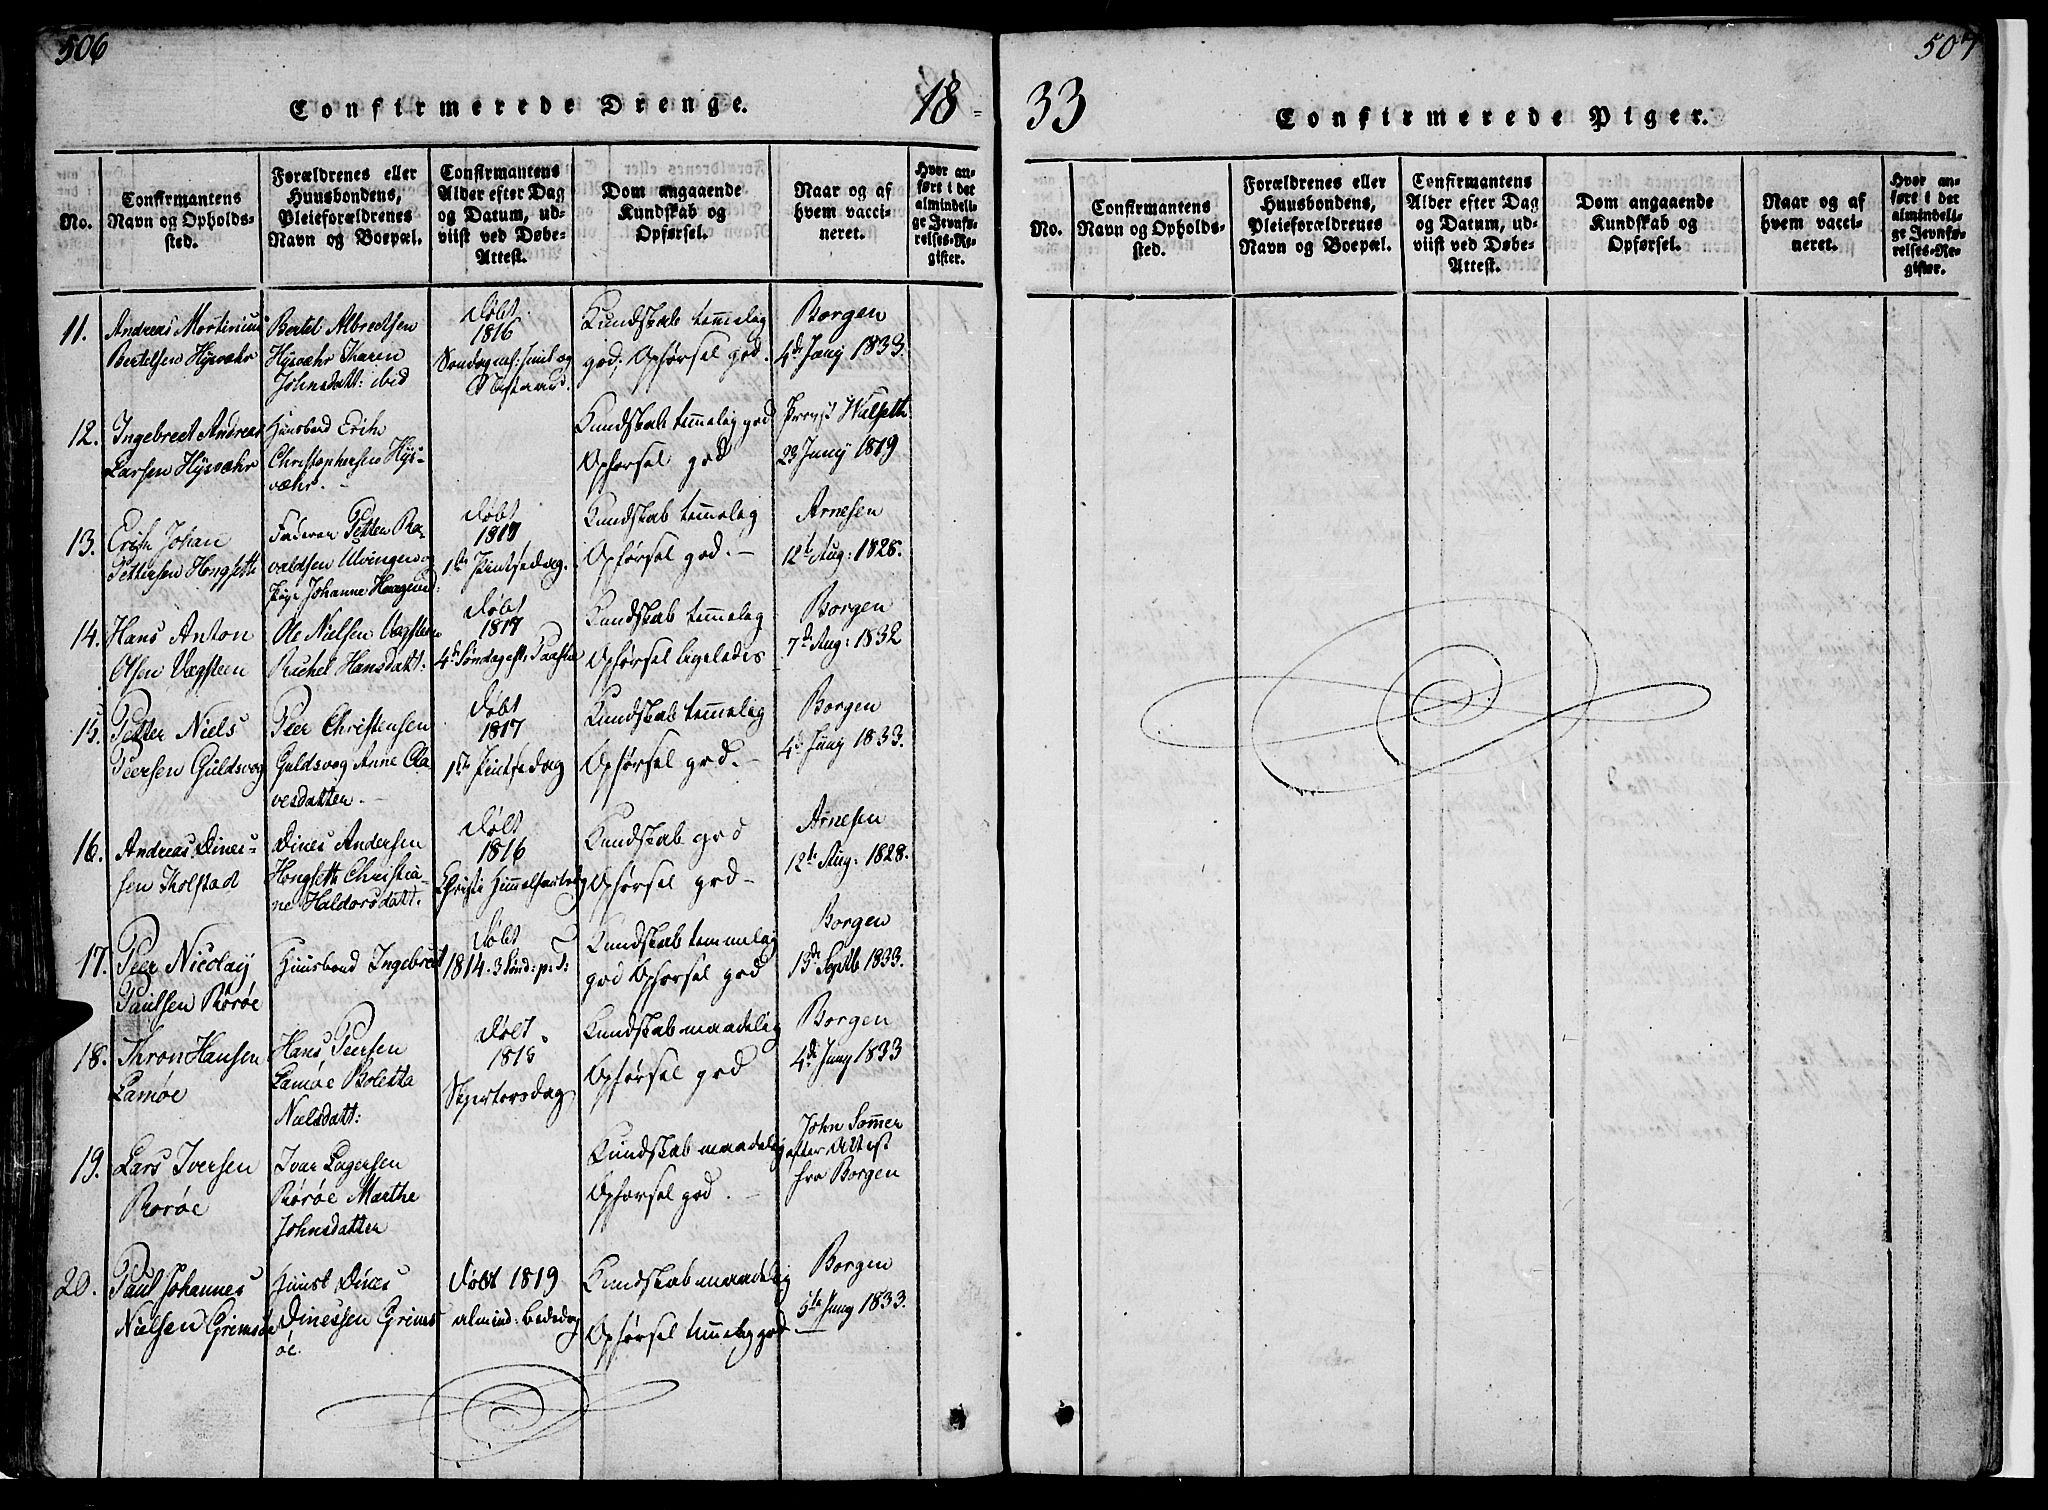 506
Confirmerede Drenge.
18
No.
Confirmantens Navn og Opholds-sted.
Forældrenes eller Huusbondens, Pleieforældrenes Navn og Boepæl.
Confirmantens Alder efter Dag og Datum, ud-viist ved Døbe-Attest.
Dom angaaende Kundskab og Opførsel.
Naar og af hvem vacci-neret.
Hvor an-ført i det almindeli-ge Jevnfø-relses-Re-gister.
11.
Andreas Mortinius
Bertelsen Hysvæhr
Bertel Albrectsen
Hysvæhr Karen
Johnsdatt: ibid
Døbt
1816
Kundskab temmelig
god. Opførsel god.
Borgen
4de Juny 1833.
12.
Ingebrect Andreas
Larsen Hysvæhr
Huusbond Erik
Christophersen Hys-
væhr.
Kundskab temmelig god
Opførsel god
Provst Walseth
23 Juny 1819
13.
Erik Johan
Pettersen Hongseth
Faderen Petter Ra-
valdsen Ulvingen og
Pige Johanne
Døbt
1819
1ste Pintsedag.
Kundskab temmelig
Opførsel god.
Arnesen
12te Aug: 1828.
14.
Hans Anton
Olsen Vægsteen
Ole Nielsen Vægsteen
Rachel Hansdatt:
Døbt
1817
4de Søndag eft: Paaske
Kundskab temmelig
Opførsel ligeledes
Borgen
7de Aug: 1832
15.
Petter Niels
Peersen Guldsvog
Peer Christensen
Guldsvog Anne Cla-
vesdatter
Døbt
1817
1ste Pintsedag
Kundskab temmelig
Opførsel god.
Borgen
4de Juny 1833.
16.
Andreas Dines-
sen Tholstad
Dines Andersen
Hongseth Christia-
ne Haldorsdatt:
Døbt
1816
Christi Himmelfartsdag
Kundskab god
Opførsel god
Arnesen
12te Aug: 1828.
17.
Peer Nicolay
Paulsen Rørøe
Huusbond Ingebrect
Døbt
1814. 3 Sønd: p: T:
Kundskab temmelig
god Opførsel god
Borgen
13de Septb 1833.
18.
Thron Hansen
Lamøe
Hans Peersen
Lamøe Boletta
Nielsdatt:
Døbt
1818
Skjertorsdag
Kundskab maadelig
Opførsel god
Borgen
4de Juny 1833
19.
Lars Iversen
Rørøe
Ivar Lagersen
Rørøe Marthe
Johnsdatter
Kundskab maadelig
Opførsel god.
John Sommer
efter Attest
fra Borgen
20.
Paul Johannes
Nielsen Grimsøe
Huusb Dines
Dinessen Grims
øe.
Døbt 1819
almind: Bededag
Kundskab maadelig
Opførsel temmelig god
Borgen
5te Juny 1833.
507
33
Confirmerede Piger.
No.
Confirmantens Navn og Opholds-sted.
Forældrenes eller Huusbondens, Pleieforældrenes Navn og Boepæl.
Confirmantens Alder efter Dag og Datum, ud-viist ved Døbe-Attest.
Dom angaaende Kundskab og Opførsel.
Naar og af hvem vacci-neret.
Hvor an-ført i det almindeli-ge Jevnfø-relses-Re-gister.